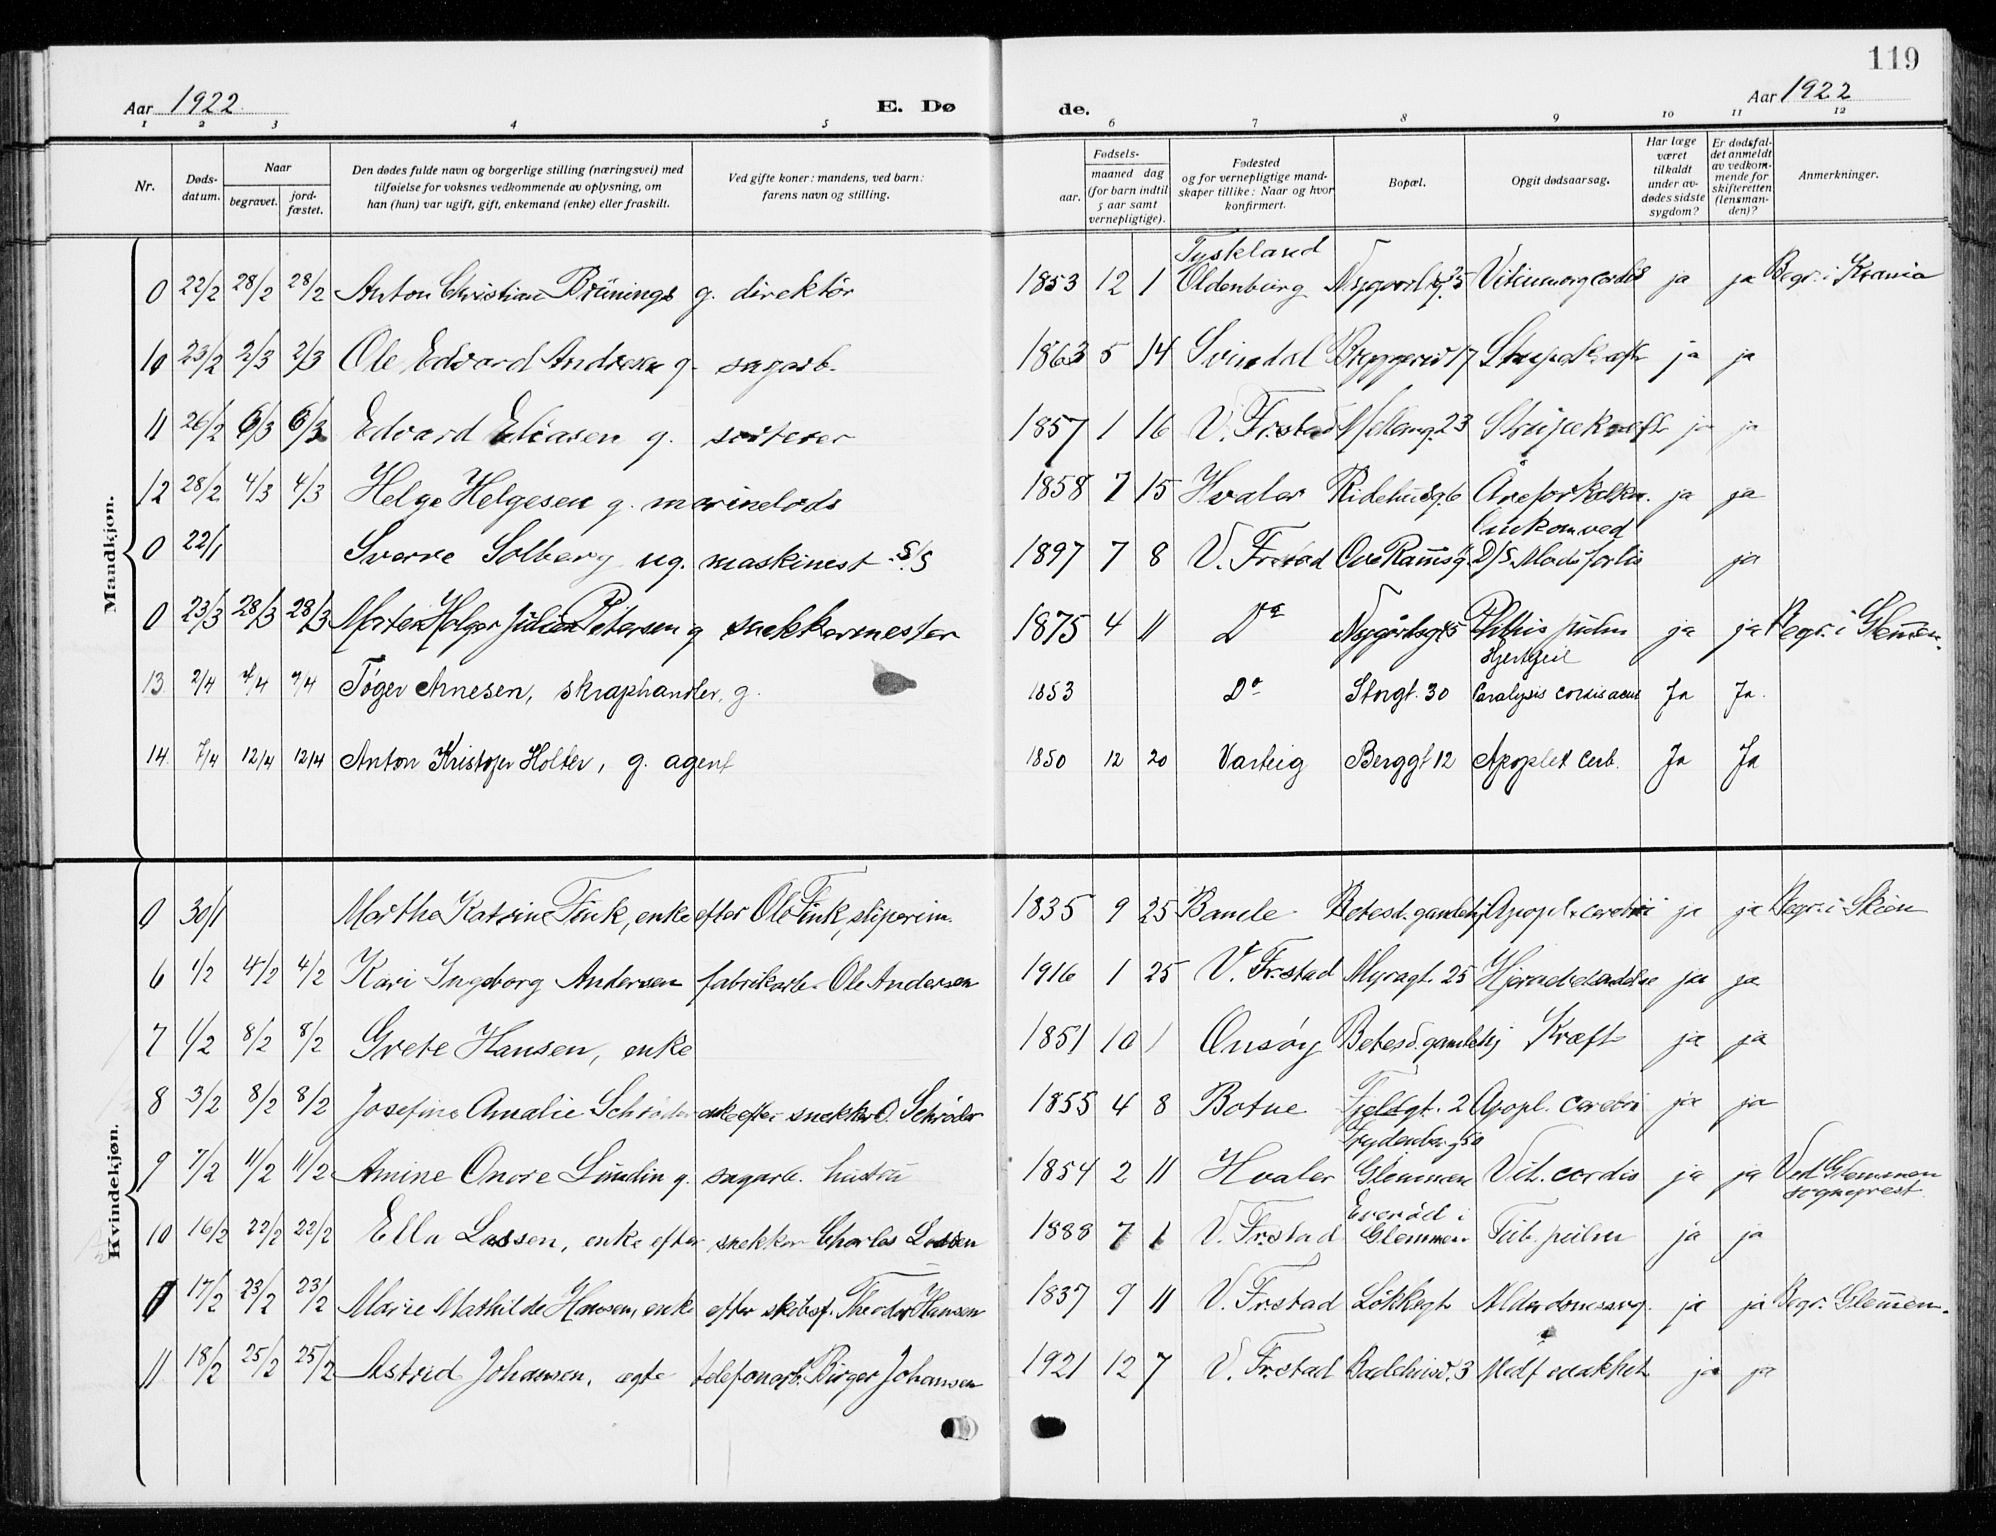 119
Aar 1922 E. Dø de. Aar 1922
1 2 3 4 5 6 7 8 9 10 11 12
Nr. Døds-datum. Naar begravet. jord-fæstet. Den dødes fulde navn og borgerlige stilling (næringsvei) med tilføielse for voksnes vedkommende av oplysning, om han (hun) var ugift, gift, enkemand (enke) eller fraskilt. Ved gifte koner: mandens, ved barn: farens navn og stilling. Fødsels- aar. maaned dag (for barn indtil 5 aar samt vernepligtige). Fødested og for vernepligtige mand-skaper tillike: Naar og hvor konfirmert. Bopæl. Opgit dødsaarsag. Har læge været tilkaldt under av-dødes sidste sygdom? Er dødsfal-det anmeldt av vedkom-mende for skifteretten (lensman-den)? Anmerkninger.
Mandkjøn.
0 22/2 28/2 28/2 Anton Christian Brünings g. direktör 1853 12 1 Tyskland Oldenburg ja ja Begr. i Krania
10 23/2 2/3 2/3 Ole Edvard Andresen g. sagarb. 1863 5 14 Svindal ja ja
11 26/2 6/3 6/3 Edvard Eliasen g. sorterer 1857 1 16 V. Fr.stad Strupekræft ja ja
12 28/2 4/3 4/3 Helge Helgesen g. marinelods 1858 7 15 Hvaler Ridehusg. 6 Åreforkalkn. ja ja
0 22/1 Sverre Solberg ug. maskinest S/S 1897 7 8 V. Fr.stad Omkom ved D/S ja
0 23/3 28/3 28/3 Morten Holger Julius Petersen g snekkermester 1875 4 11 Do Phthis pulm ja ja Begr. i Glemmen.
13 2/4 7/4 7/4 Tøger Arnesen, skraphandler, g. 1853 Do Storgt. 30 Hjertfeil Paralysis cordis acut Ja Ja.
14. 7/4 12/4 12/4 Anton Kristofer Holter, g. agent 1850 12 20 Varteig Berggt 12 Apoplex cerb. Ja Ja
Kvindekjøn.
0 30/1 Marthe Katrine Fink, enke efter Ole Fink, sliperim. 1835 9 25 Bamle Betesd. gamlehj Apopl. cerebri ja ja Begr. i Skien
6 1/2 4/2 4/2 Kari Ingeborg Andersen fabrikarb. Ole Andersen 1916 1 25 V. Fr.stad Myragt. 25 ja ja
7 1/2 8/2 8/2 Grete Hansen, enke 1851 10 1 Onsøy Betesd. gamlehj Kræft ja ja
8 3/2 8/2 8/2 Josefine Amalie Schrøder enke efter snekker O. Schrøder 1855 4 8 Botne Fjeldgt. 2 Apopl. cerebri ja ja
9 7/2 11/2 11/2 Amine Onore Lundin g. sagarb. hustru 1854 2 11 Hvaler Frydenberg 50 Glemmen Vit. cordis ja ja Ved Glemmen sogneprest
10 16/2 22/2 22/2 Ella Lassen, enke efter snekker Charles Lassen 1888 7 1 V. Fr.stad Evenrød i Glemmen Tub. pulm ja ja
0 17/2 23/2 23/2 Marie Mathilde Hansen, enke efter skibsf. Theodor Hansen 1837 9 11 V. Fr.stad Løkkegt Alderdomssvag. ja ja Begr. Glemmen.
11 18/2 25/2 25/2 Astrid Johansen, ægte telefonarb. Birger Johansen 1921 12 7 V. Fr.stad Badehusv. 3 Medf ja ja